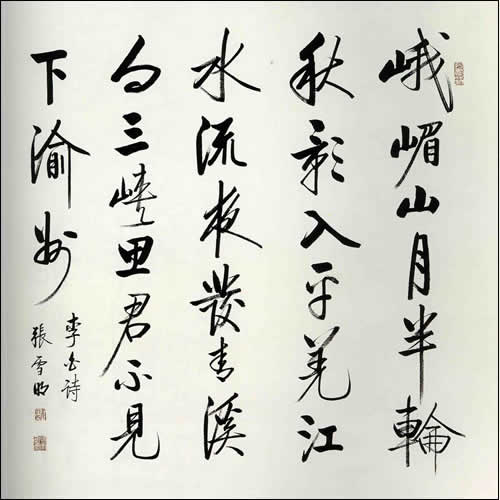 峨嵋山月半輪
秋影入平羌江
水流夜發青溪
向三峽思君不見
下渝州
李白詩
張雪明